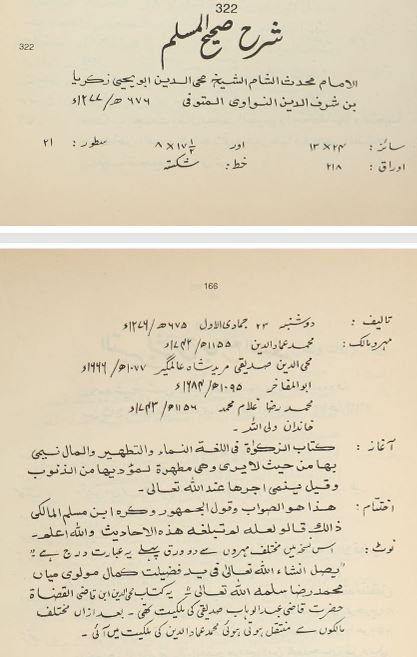 322
322
شرح صحیح المسلم
الامام محدث الشام الشیخ محی الدین ابو یحییٰ زکریا
بن شرف الدین النواوی المتوفی ۶۷۶ھ/۱۲۷۷ء
سائز: ۲۴ × ۱۳ اور ۱۷ ۱/۲ × ۸ سطور: ۲۱
اوراق: ۲۱۸ خط: شکستہ
166
تالیف: دوشنبہ ۲۳ جمادی الاول ۶۷۵ھ/۱۲۷۶ء
مہر و مالک: محمد عماد الدین ۱۱۵۵ھ/۱۷۴۲ء
محی الدین صدیقی مرید شاہ عالمگیر ۱۰۷۷ھ/۱۶۶۶ء
ابو المفاخر ۱۰۹۵ھ/۱۶۸۴ء
محمد رضا غلام محمد ۱۱۵۶ھ/۱۷۴۳ء
خاندان ولی اللہ۔
آغاز: کتاب الزکوٰۃ فی اللغۃ النماء والتطهیر والمال نسبی
بها من حیث لا یری وهی مطهرة لمؤدیها من الذنوب
وقیل ینمی اجرها عند الله تعالیٰ۔
اختتام: هذا هو الصواب وقول الجمهور وکره ابن مسلم المالکی
ذالک قالو لعله لم تبلغه هذه الاحادیث والله اعلم۔
نوٹ: اس نسخہ میں مختلف مہروں سے دو ورق پہلے یہ عبارت درج ہے "
یصل انشاء الله تعالیٰ فی ید فضیلت کمال مولوی میاں
محمد رضا سلمه الله تعالیٰ" یہ کتاب محی الدین ابن قاضی القضاة
حضرت قاضی عبد الوہاب صدیقی کی ملکیت تھی۔ بعد ازاں مختلف
مالکوں سے منتقل ہوتی ہوئی محمد عماد الدین کی ملکیت میں آئی۔